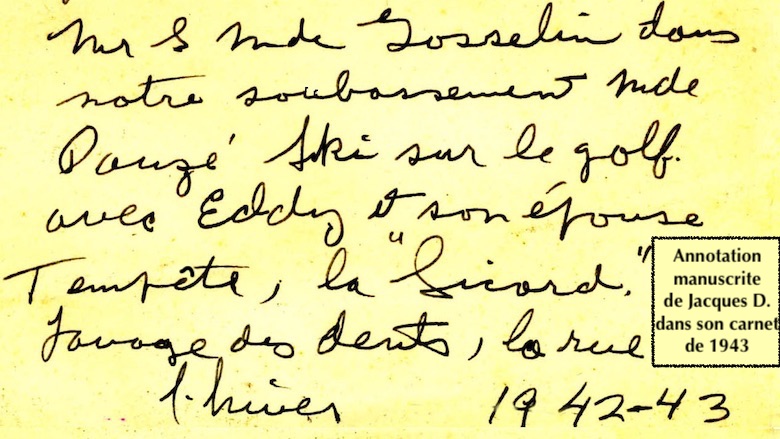 Mr & Mde Gosselin dans
notre soubassement Mde
Pouzé Ski sur le golf.
avec Eddy et son épouse
Tempête, la "Sicard."
Lavage des dents, la rue
l'hiver 1942-43
Annotation
manuscrite
de Jacques D.
dans son carnet
de 1943